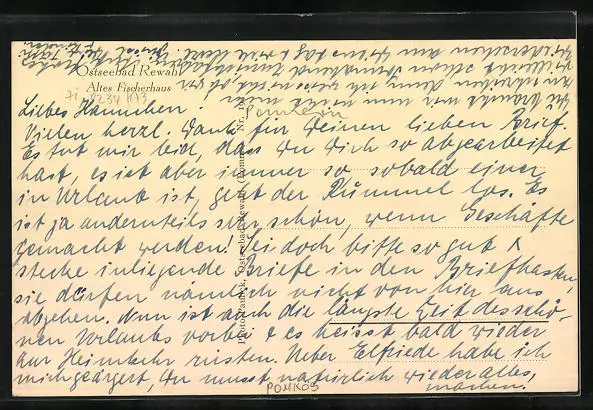 Ostseebad Rewahl
Altes Fischerhaus
Liebes Hannchen!
Vielen herzl. Dank für Deinen lieben Brief.
Es tut mir leid, dass Du Dich so abgearbeitet
hast, es ist aber immer so sobald einer
in Urlaub ist, geht der Rummel los. Es
ist ja andernteils sehr schön, wenn Geschäfte
gemacht werden! Sei doch bitte so gut &
stecke inliegende Briefe in den Briefkasten,
sie dürfen nämlich nicht von hier aus
abgehen. Nun ist auch die längste Zeit des schö-
nen Urlaubs vorbei & es heisst bald wieder
zur Heimkehr rüsten. Ueber Elfriede habe ich
mich geärgert, Du musst natürlich wieder alles
machen.
Pommern
POMKOS